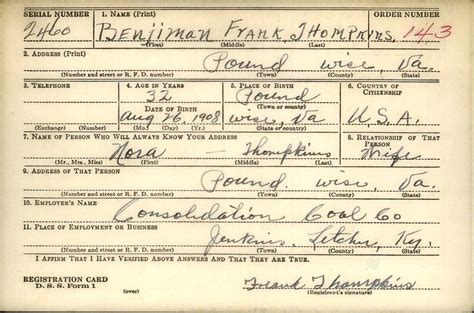 SERIAL NUMBER 1. NAME (Print) ORDER NUMBER
2460 BENJIMAN FRANK THOMPKINS 143
(First) (Middle) (Last)
2. ADDRESS (Print)
Pound Wise, Va.
(Number and street or R. F. D. number) (Town) (County) (State)
3. TELEPHONE 4. AGE IN YEARS 5. PLACE OF BIRTH 6. COUNTRY OF CITIZENSHIP
32 Pound
(Town or county)
DATE OF BIRTH
Aug 26, 1908 Wise, Va U.S.A.
(Exchange) (Number) (Mo.) (Day) (Yr.) (State or country)
7. NAME OF PERSON WHO WILL ALWAYS KNOW YOUR ADDRESS 8. RELATIONSHIP OF THAT PERSON
Nora Thompkins Wife
(Mr., Mrs., Miss) (First) (Middle) (Last)
9. ADDRESS OF THAT PERSON
Pound. Wise Va.
(Number and street or R. F. D. number) (Town) (County) (State)
10. EMPLOYER'S NAME
Consolidation Coal Co
11. PLACE OF EMPLOYMENT OR BUSINESS
Jenkins, Letcher, Ky.
(Number and street or R. F. D. number) (Town) (County) (State)
I AFFIRM THAT I HAVE VERIFIED ABOVE ANSWERS AND THAT THEY ARE TRUE.
REGISTRATION CARD
D. S. S. Form 1 Frank Thompkins
(Registrant's signature)